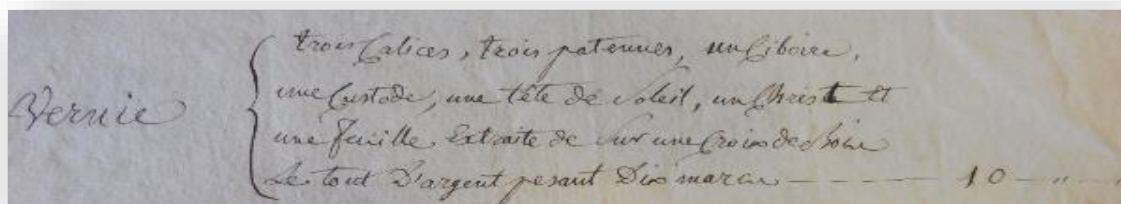 Vernie
trois Calices, trois patennes, un Ciboire,
une Custode, une tête de Soleil, un Christ et
une feuille Extraite de sur une Croix de
Le tout D'argent pesant Dix marcs — 10 — " — "